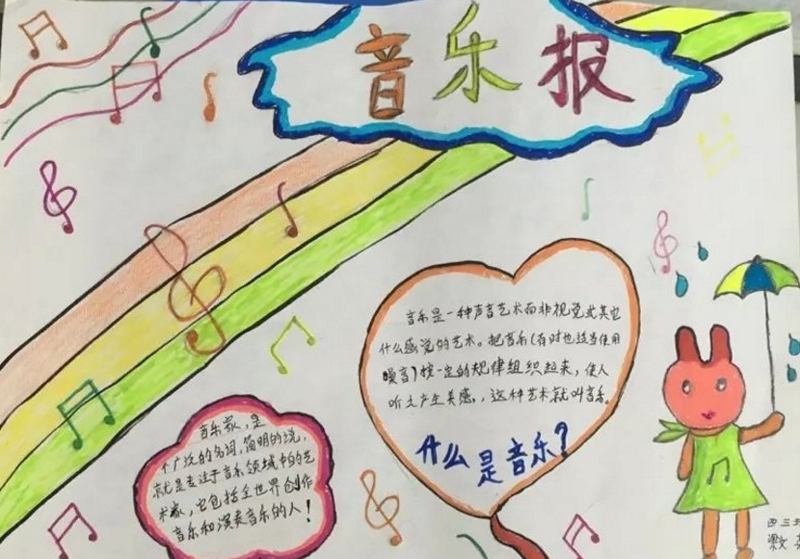 音乐报
音乐是一种声音艺术而非视觉或其它
什么感觉的艺术。把音乐(有时也适当使用
噪音)按一定的规律组织起来，使人
听之产生美感，这种艺术就叫音乐。
什么是音乐?
音乐家，是
个广泛的名词，简明的说，
就是专注于音乐领域中的艺
术家，它包括全世界创作
音乐和演奏音乐的人!
四三